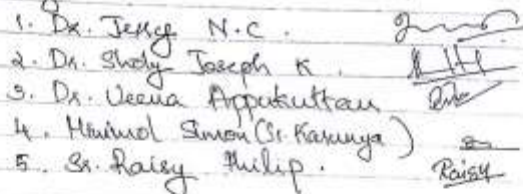 1. Dr. Jessy N.C.
2. Dr. Shoby Joseph K.
3. Dr. Veena Appukuttan
4. Minimol Simon (Sr. Karunya)
5. Sr. Raisy Philip. Raisy